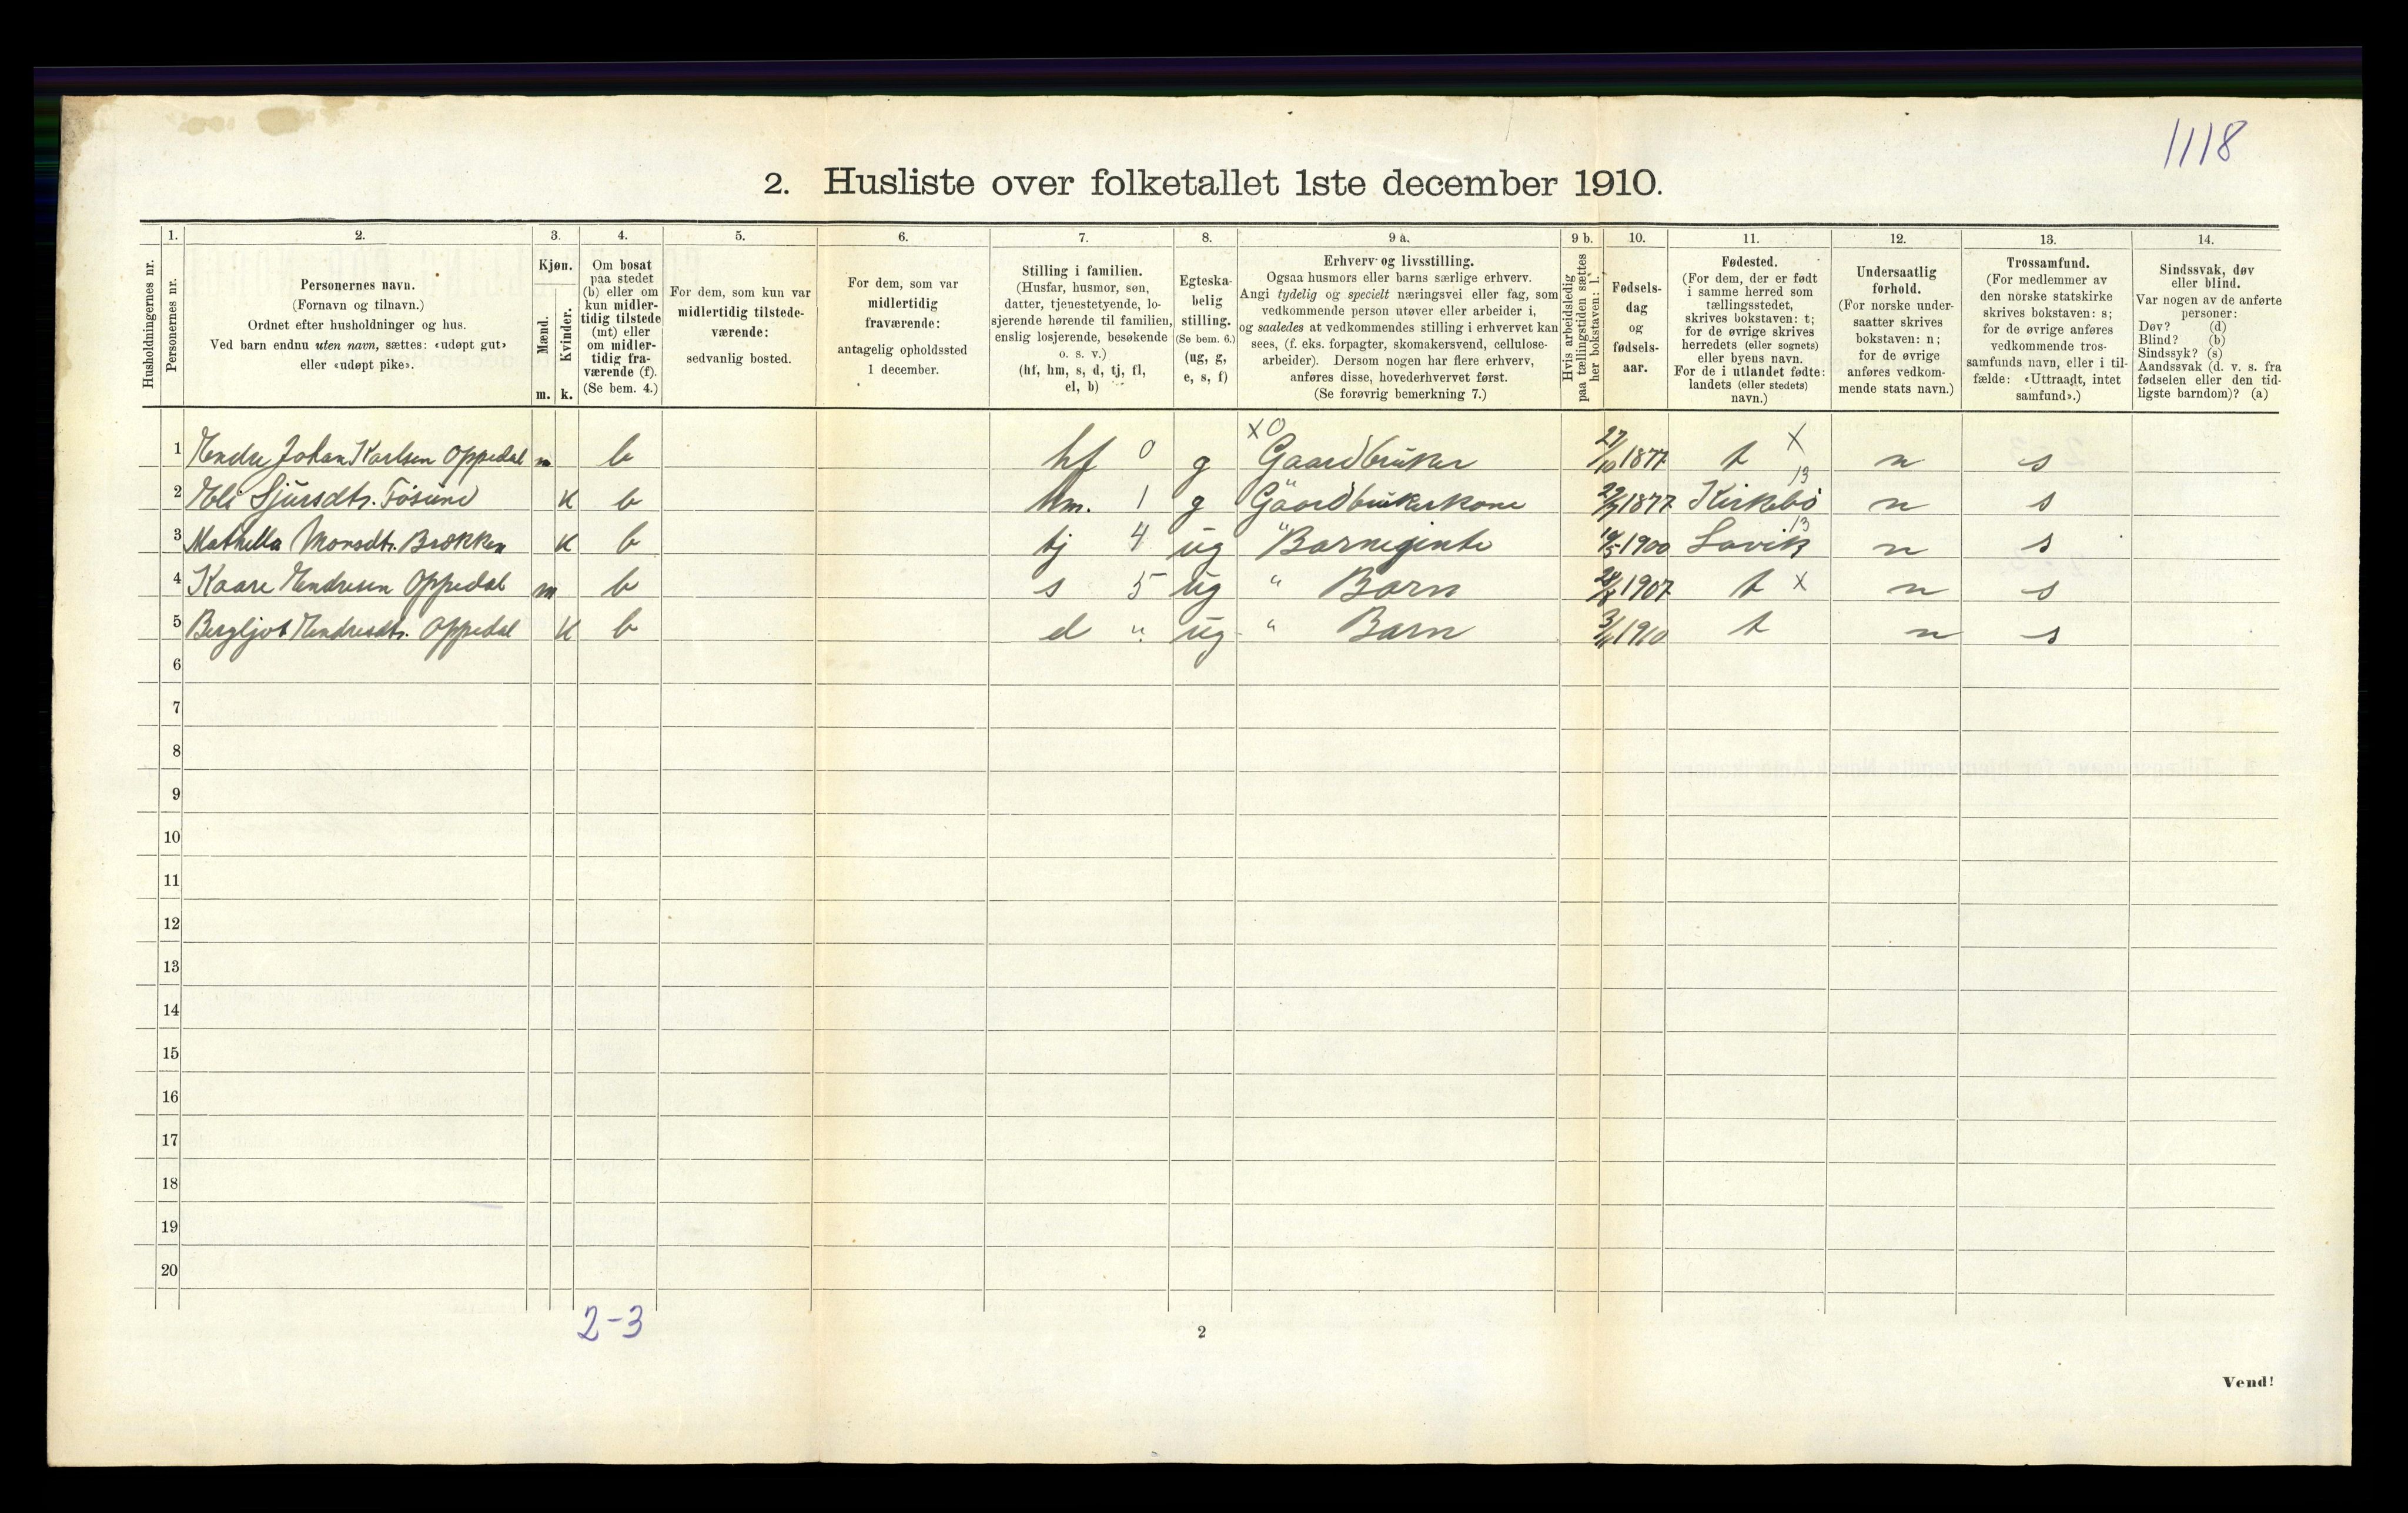 1118
2. Husliste over folketallet 1ste december 1910.
Husholdningernes nr.
1. Personernes nr.
2. Personernes navn.
(Fornavn og tilnavn.)
Ordnet efter husholdninger og hus.
Ved barn endnu uten navn, sættes: «udøpt gut»
eller «udøpt pike».
3. Kjøn.
Mænd. m.
Kvinder. k.
4. Om bosat
paa stedet
(b) eller om
kun midler-
tidig tilstede
(mt) eller
om midler-
tidig fra-
værende (f).
(Se bem. 4.)
5. For dem, som kun var
midlertidig tilstede-
værende:
sedvanlig bosted.
6. For dem, som var
midlertidig
fraværende:
antagelig opholdssted
1 december.
7. Stilling i familien.
(Husfar, husmor, søn,
datter, tjenestetyende, lo-
sjerende hørende til familien,
enslig losjerende, besøkende
o. s. v.)
(hf, hm, s, d, tj, fl,
el, b)
8. Egteska-
belig
stilling.
(Se bem. 6.)
(ug, g,
e, s, f)
9 a. Erhverv og livsstilling.
Ogsaa husmors eller barns særlige erhverv.
Angi tydelig og specielt næringsvei eller fag, som
vedkommende person utøver eller arbeider i,
og saaledes at vedkommendes stilling i erhvervet kan
sees, (f. eks. forpagter, skomakersvend, cellulose-
arbeider). Dersom nogen har flere erhverv,
anføres disse, hovederhvervet først.
(Se forøvrig bemerkning 7.)
9 b. Hvis arbeidsledig
paa tællingstiden sættes
her bokstaven: l.
10. Fødsels-
dag
og
fødsels-
aar.
11. Fødested.
(For dem, der er født
i samme herred som
tællingsstedet,
skrives bokstaven: t;
for de øvrige skrives
herredets (eller sognets)
eller byens navn.
For de i utlandet fødte:
landets (eller stedets)
navn.)
12. Undersaatlig
forhold.
(For norske under-
saatter skrives
bokstaven: n;
for de øvrige
anføres vedkom-
mende stats navn.)
13. Trossamfund.
(For medlemmer av
den norske statskirke
skrives bokstaven: s;
for de øvrige anføres
vedkommende tros-
samfunds navn, eller i til-
fælde: «Uttraadt, intet
samfund».)
14. Sindssvak, døv
eller blind.
Var nogen av de anførte
personer:
Døv? (d)
Blind? (b)
Sindssyk? (s)
Aandssvak (d. v. s. fra
fødselen eller den tid-
ligste barndom)? (a)
1 Endre Johan Karlsen Oppedal m b hf 0 g X0 Gaardbruker 27/10 1877 t X n s
2 Eli Sjursdtr. Tösund k b hm. 1 g Gaardbrukerkone 1877 Kirkebö 13 n s
3 Mathilla Monsdtr. Brækken k b tj 4 ug " Barnegjente 1900 Lavik 13 n s
4 Kaare Endresen Oppedal m b s 5 ug " Barn 1907 t X n s
5 Bergljot Endresdtr. Oppedal k b d " ug " Barn 3/11 1910 t n s
6
7
8
9
10
11
12
13
14
15
16
17
18
19
20
2-3
2
Vend!